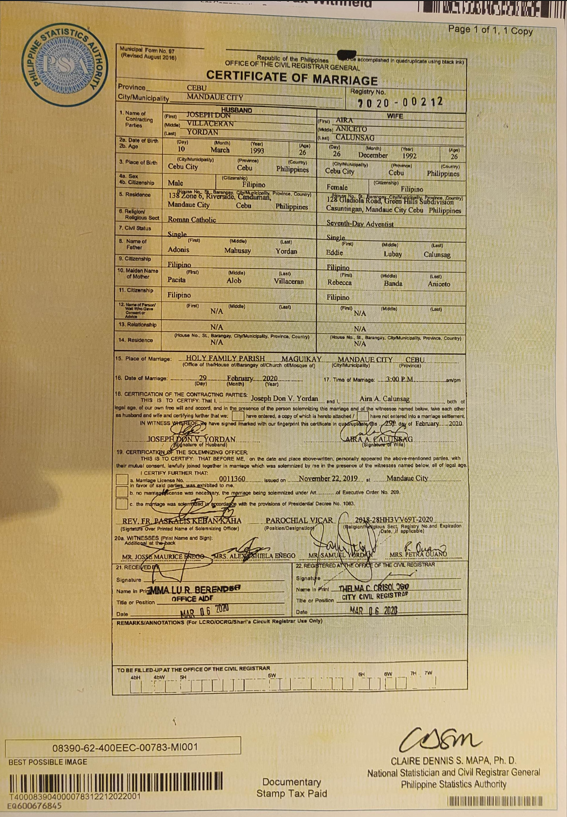 Page 1 of 1, 1 Copy
PHILIPPINE STATISTICS AUTHORITY
PSA
Municipal Form No. 97
(Revised August 2016)
Republic of the Philippines
OFFICE OF THE CIVIL REGISTRAR GENERAL
accomplished in quadruplicate using black ink)
CERTIFICATE OF MARRIAGE
Province CEBU
City/Municipality MANDAUE CITY
Registry No. 2020-00212
HUSBAND WIFE
1. Name of Contracting Parties
(First) JOSEPH DON (First) AIRA
(Middle) VILLACERAN (Middle) ANICETO
(Last) YORDAN (Last) CALUNSAG
2a. Date of Birth
2b. Age
(Day) (Month) (Year) (Age) (Day) (Month) (Year) (Age)
10 March 1993 26 26 December 1992 26
3. Place of Birth
(City/Municipality) (Province) (Country) (City/Municipality) (Province) (Country)
Cebu City Cebu Philippines Cebu City Cebu Philippines
4a. Sex
4b. Citizenship
(Citizenship) (Citizenship)
Male Filipino Female Filipino
5. Residence
(House No., St., Barangay, City/Municipality, Province, Country)
138 Zone 6, Riverside, Canduman, Mandaue City Cebu Philippines
128 Gladiola Road, Green Hills Subdivision
Casuntingan, Mandaue City Cebu Philippines
6. Religion/Religious Sect
Roman Catholic Seventh-Day Adventist
7. Civil Status
Single Single
8. Name of Father
(First) (Middle) (Last) (First) (Middle) (Last)
Adonis Mabusay Yordan Eddie Lubay Calunsag
9. Citizenship
Filipino Filipino
10. Maiden Name of Mother
(First) (Middle) (Last) (First) (Middle) (Last)
Pacita Alob Villaceran Rebecca Banda Aniceto
11. Citizenship
Filipino Filipino
12. Name of Person/ Wali Who Gave Consent or Advice
(First) (Middle) (Last) (First) (Middle) (Last)
N/A N/A
13. Relationship
N/A N/A
14. Residence
(House No., St., Barangay, City/Municipality, Province, Country) (House No., St., Barangay, City/Municipality, Province, Country)
N/A N/A
15. Place of Marriage: HOLY FAMILY PARISH MAGUIKAY MANDAUE CITY CEBU
(Office of the/House of/Barangay of/Church of/Mosque of) (City/Municipality) (Province)
16. Date of Marriage: 29 February 2020 17. Time of Marriage: 3:00 P.M am/pm
(Day) (Month) (Year)
18. CERTIFICATION OF THE CONTRACTING PARTIES:
THIS IS TO CERTIFY: That I, Joseph Don V. Yordan and I, Aira A. Calunsag, both of
legal age, of our own free will and accord, and in the presence of the person solemnizing this marriage and of the witnesses named below, take each other
as husband and wife and certifying further that we: have entered, a copy of which is hereto attached / have not entered into a marriage settlement.
IN WITNESS WHEREOF, we have signed/marked with our fingerprint this certificate in quadruplicate this 29th day of February 2020.
JOSEPH DON V. YORDAN AIRA A. CALUNSAG
(Signature of Husband) (Signature of Wife)
19. CERTIFICATION OF THE SOLEMNIZING OFFICER:
THIS IS TO CERTIFY: THAT BEFORE ME, on the date and place above-written, personally appeared the above-mentioned parties, with
their mutual consent, lawfully joined together in marriage which was solemnized by me in the presence of the witnesses named below, all of legal age.
I CERTIFY FURTHER THAT:
a. Marriage License No. 0011360 issued on November 22, 2019 at Mandaue City
in favor of said parties, was exhibited to me.
b. no marriage license was necessary, the marriage being solemnized under Art of Executive Order No. 209.
c. the marriage was solemnized in accordance with the provisions of Presidential Decree No. 1083.
REV. FR. PASKALIS PAROCHIAL VICAR
(Signature Over Printed Name of Solemnizing Officer) (Position/Designation) (Religion/Religious Sect, Registry No. and Expiration Date, if applicable)
20a. WITNESSES (Print Name and Sign):
Additional at the back
MR. JOSSE MAURICE ENEGO MR. SAMUEL YORDAN MRS. PETRA OUANO
21. RECEIVED BY 22. REGISTERED AT THE OFFICE OF THE CIVIL REGISTRAR
Signature Signature
Name in Print EMMA LU R. BERENDO Name in Print THELMA C.
Title or Position OFFICE AIDE Title or Position CITY CIVIL REGISTRAR
Date MAR 06 2020 Date MAR 06 2020
REMARKS/ANNOTATIONS (For LCRO/OCRG/Shari'a Circuit Registrar Use Only)
TO BE FILLED-UP AT THE OFFICE OF THE CIVIL REGISTRAR
4bH 4bW 5H 5W 6H 6W 7H 7W
08390-62-400EEC-00783-MI001
BEST POSSIBLE IMAGE
T400083904000078312212022001
EQ600676845
Documentary
Stamp Tax Paid
CLAIRE DENNIS S. MAPA, Ph. D.
National Statistician and Civil Registrar General
Philippine Statistics Authority